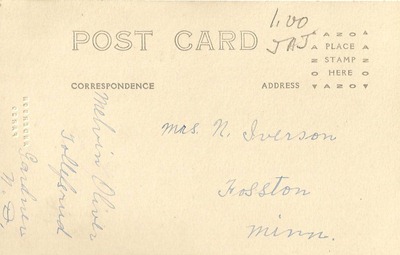 1.00
JAJ
POST CARD
AZOA
PLACE
STAMP
HERE
AZOA
CORRESPONDENCE
ADDRESS
Melvin Oliver
Tollefsrud
Gardner
N. D.
Mrs. N. Iverson
Fosston
Minn.